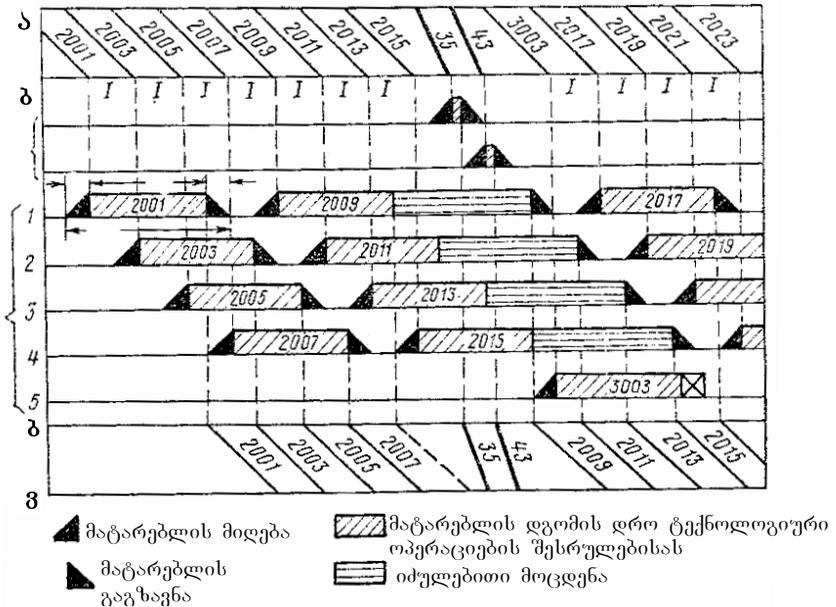 ა 2001 2003 2005 2007 2009 2011 2013 2015 35 43 3003 2017 2019 2021 2023
ბ I I I I I I I I I I I
1 2001 2009 2017
2 2003 2011 2019
3 2005 2013
4 2007 2015
5 3003
ბ
2001 2003 2005 2007 35 43 2009 2011 2013 2015
გ
მატარებლის მიღება
მატარებლის დგომის დრო ტექნოლოგიური
ოპერაციების შესრულებისას
მატარებლის
გაგზავნა
იძულებითი მოცდენა